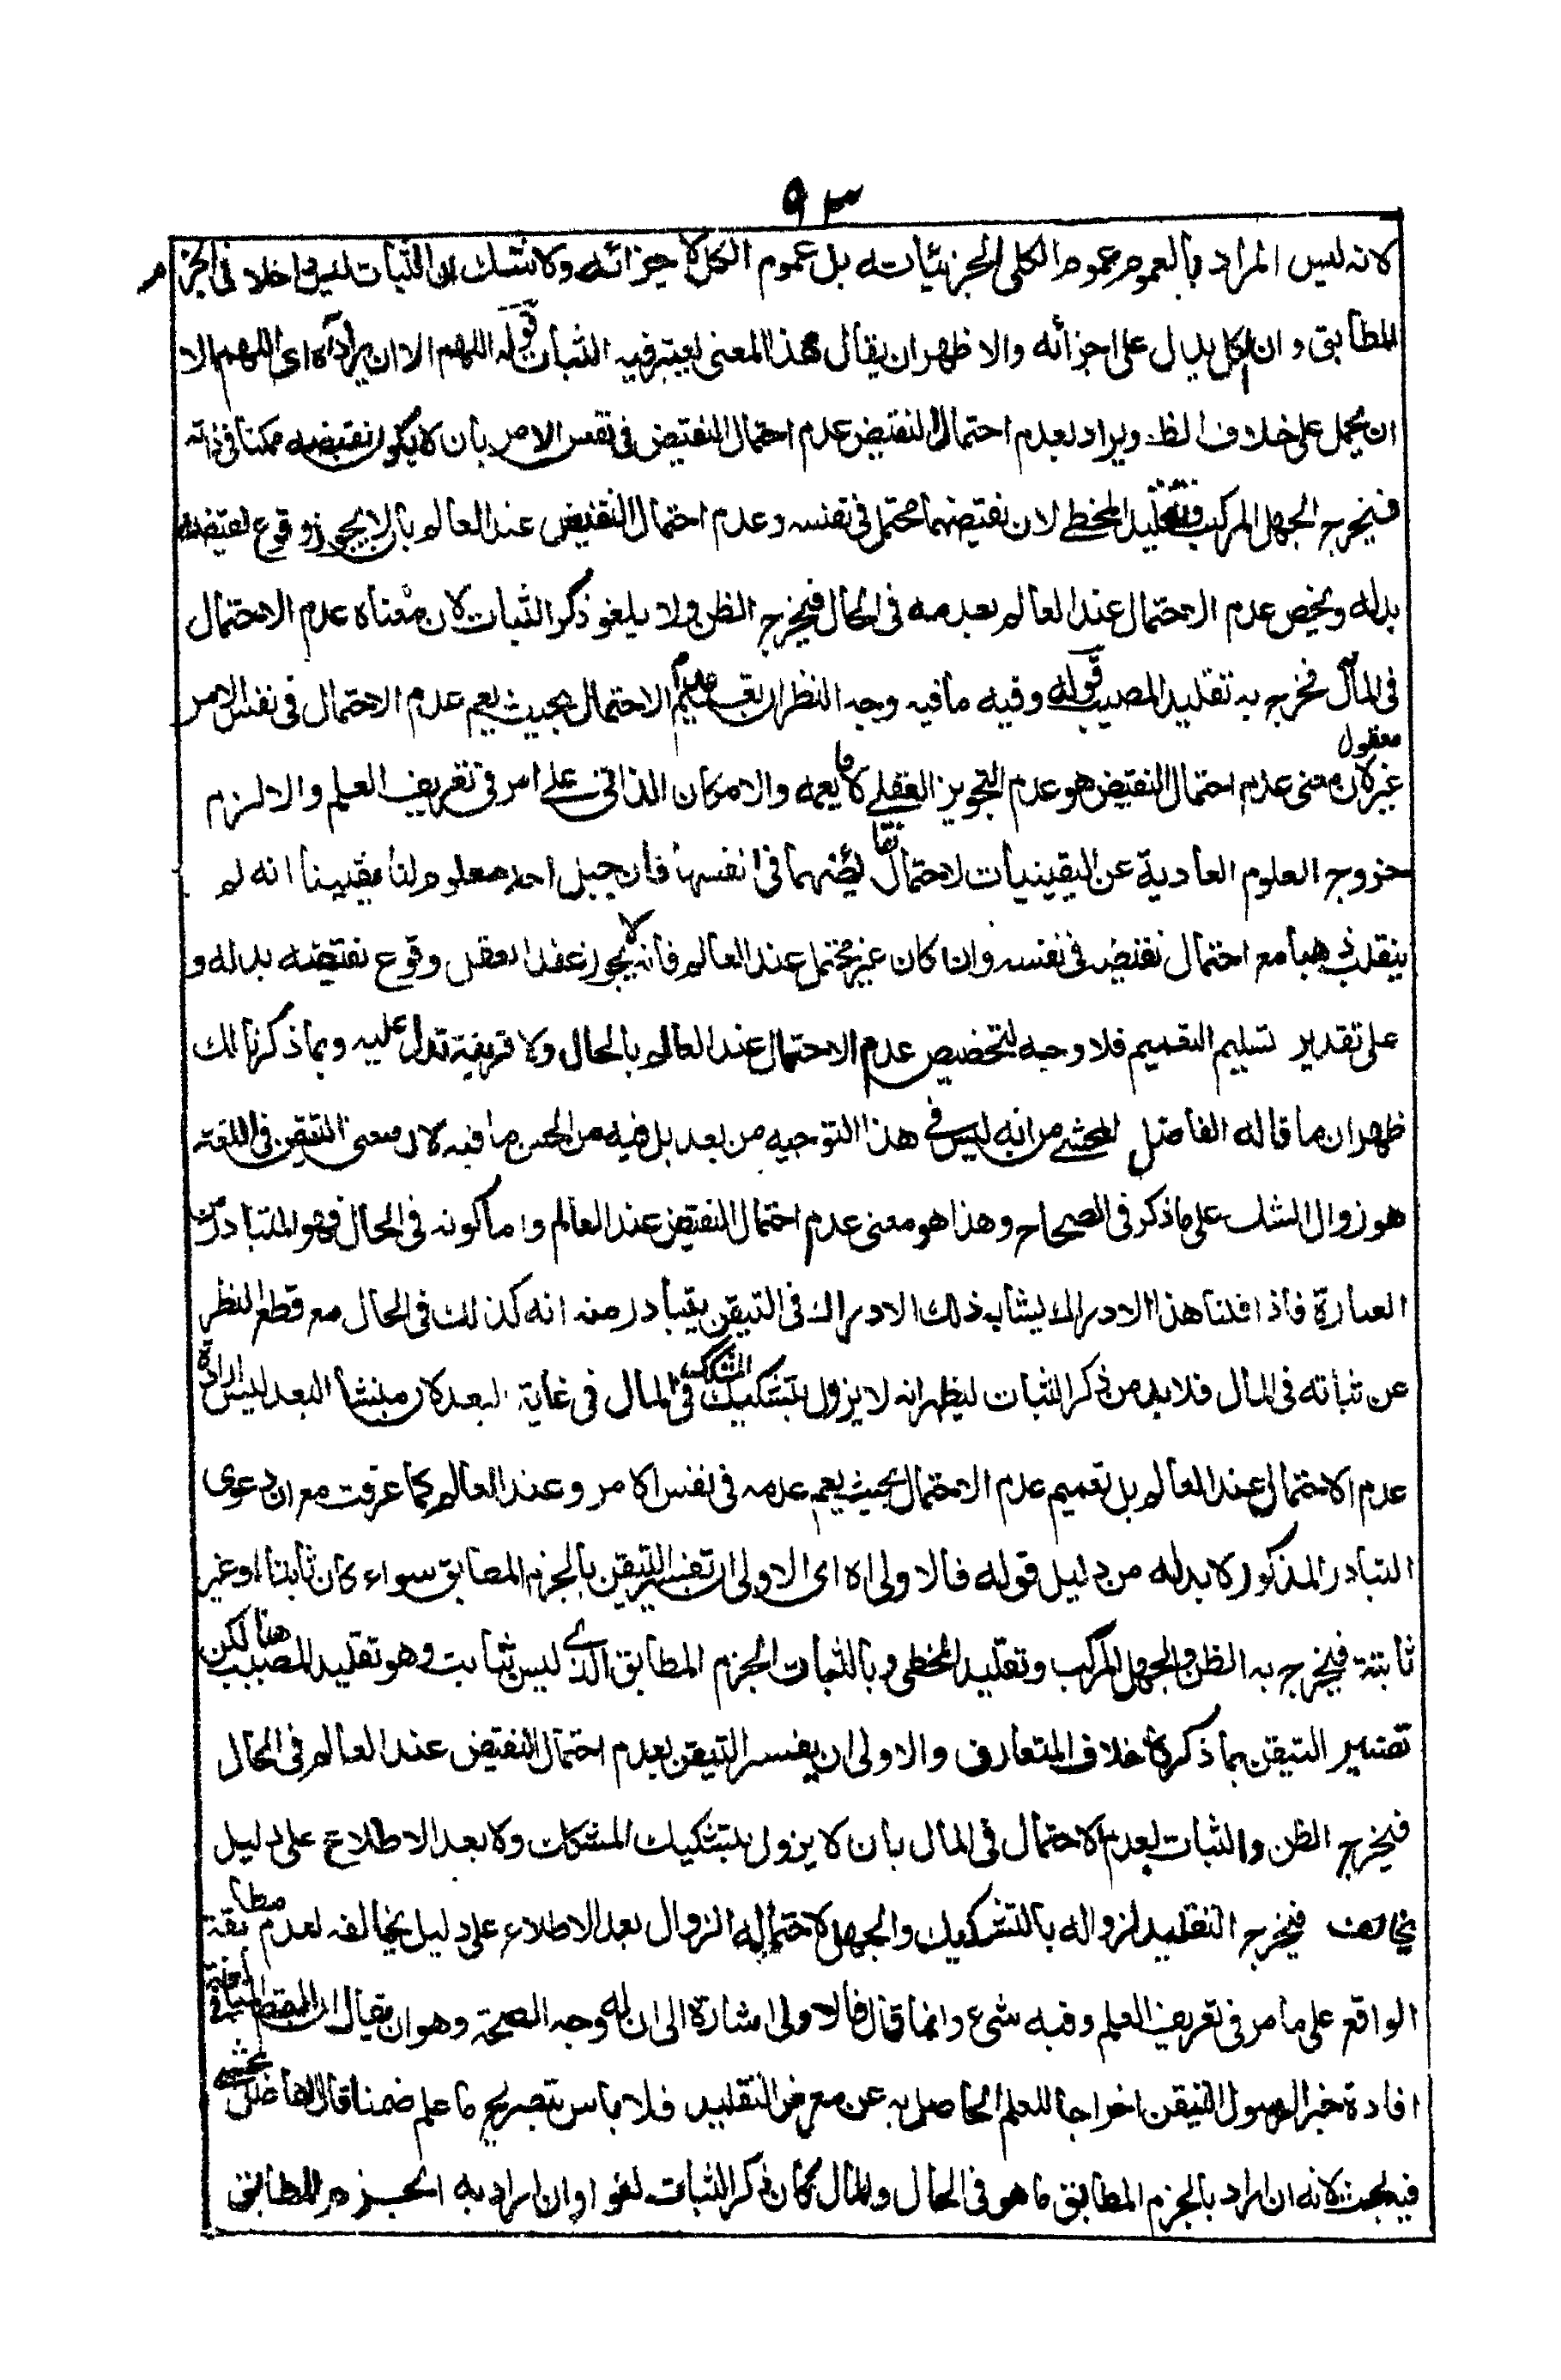 ٩٣
لانه ليس المراد بالعموم عموم الكلى لجزئياته بل عموم الكل لاجزائه ولا شك ان الثبات ليس داخلا فى الجزم
المطابق وان الكل يدل على اجزائه والاظهر ان يقال هذا المعنى يعتبر فيه الثبات قوله اللهم الا ان يراد اه اى اللهم الا
ان يحمل على خلاف الظ ويراد بعدم احتمال النقيض عدم احتمال النقيض فى نفس الامر بان لا يكون نقيضه ممكنا فى ذاته
فيخرج الجهل المركب وتقليد المخطى لان نقيضهما محتمل فى نفسه وعدم احتمال النقيض عند العالم بان لا يجوز وقوع نقيضه
بدله ويخص عدم الاحتمال عند العالم بعدمه فى الحال فيخرج الظن ولا يلغو ذكر الثبات لان معناه عدم الاحتمال
فى المآل فخرج به تقليد المصيب قوله وفيه ما فيه وجه النظر ان تعميم الاحتمال بحيث يعم عدم الاحتمال فى نفس الامر
غير معقول لان معنى عدم احتمال النقيض هو عدم التجويز العقلى لا ما يعمه والامكان الذاتى على ما مر فى تعريف العلم والا لزم
خروج العلوم العادية عن اليقينيات لاحتمال نقائضها فى انفسها فان جبل احد معلوم لنا يقينا انه لم
ينقلب ذهبا مع احتمال نقيضه فى نفسه وان كان غير محتمل عند العالم فانه لا يجوز عند العقل وقوع نقيضه بدله و
على تقدير تسليم التعميم فلا وجه لتخصيص عدم الاحتمال عند العالم بالحال ولا قرينة تدل عليه وبما ذكرنا لك
ظهر ان ما قاله الفاضل المحشى من انه ليس فى هذا التوجيه من بعد بل فيه من الحسن ما فيه لان معنى التيقن فى اللغة
هو زوال الشك على ما ذكر فى الصحاح وهذا هو معنى عدم احتمال النقيض عند العالم واما كونه فى الحال فهو المتبادر من
العبارة فاذا قلنا هذا الادراك يشابه ذلك الادراك فى التيقن يتبادر منه انه كذلك فى الحال مع قطع النظر
عن ثباته فى المآل فلا بد من ذكر الثبات ليظهر انه لا يزول بتشكيك المشكك فى المآل فى غاية البعد لان منشأ البعد ليس ارادة
عدم الاحتمال عند العالم بل تعميم عدم الاحتمال بحيث يعم عدمه فى نفس الامر وعند العالم كما عرفت مع ان دعوى
التبادر المذكور لا بد له من دليل قوله فالاولى اه اى الاولى ان تفسير التيقن بالجزم المطابق سواء كان ثابتا او غير
ثابتة فيخرج به الظن والجهل المركب وتقليد المخطى وبالثبات الجزم المطابق الذى ليس بثابت وهو تقليد المصيب هذا لكن
تفسير التيقن بما ذكره خلاف المتعارف والاولى ان يفسر التيقن بعدم احتمال النقيض عند العالم فى الحال
فيخرج الظن والثبات بعدم الاحتمال فى المآل بان لا يزول بتشكيك المشكك ولا بعد الاطلاع على دليل
يخالفه فيخرج التقليد لزواله بالتشكيك والجهل لاحتماله الزوال بعد الاطلاع على دليل يخالفه لعدم مطابقة
الواقع على ما مر فى تعريف العلم وفيه شىء وانما قال فالاولى اشارة الى ان له وجه الصحة وهو ان يقال ان المقصد المبالغة فى
افادة خبر الرسول التيقن اخراجا للعلم الحاصل به عن معرض التقليد فلا بأس بتصريح ما علم ضمنا قال الفاضل المحشى
فيه بحث لانه ان اراد بالجزم المطابق ما هو فى الحال والمآل كان ذكر الثبات لغوا وان اراد به الجزم المطابق